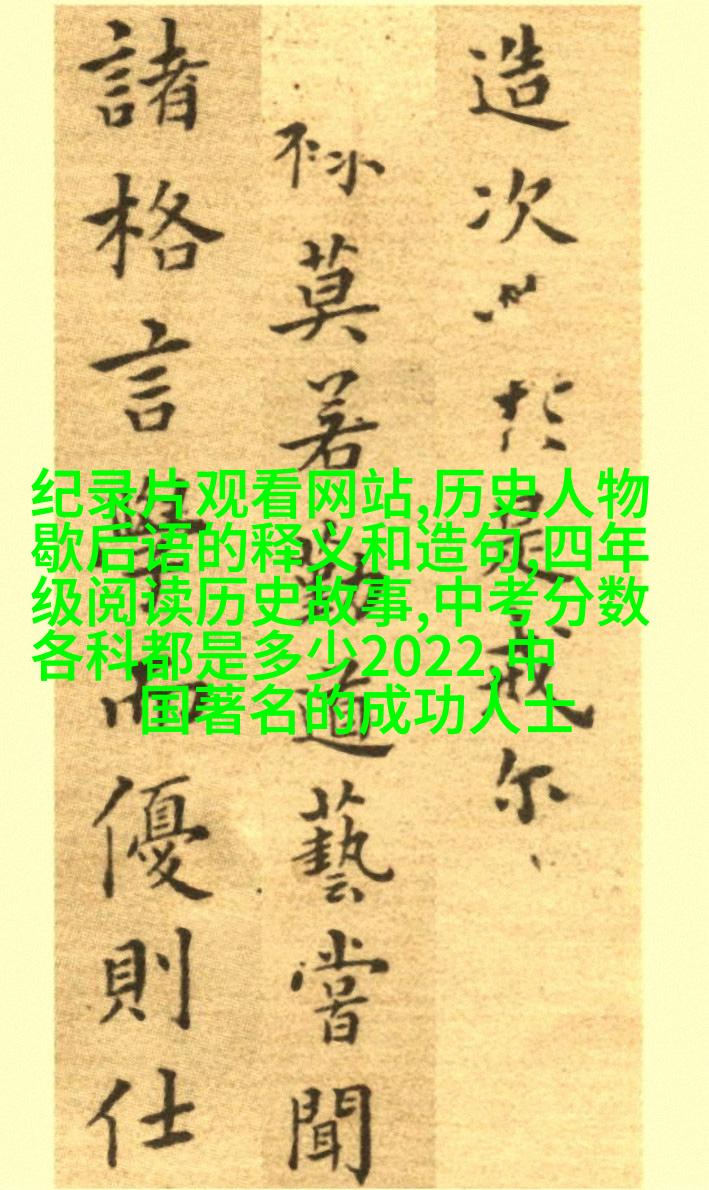 造次於是戒尔
莫若勤道藝嘗聞
諸格言學而優則仕
纪录片观看网站,历史人物
歇后语的释义和造句,四年
级阅读历史故事,中考分数
各科都是多少2022,中
国著名的成功人士